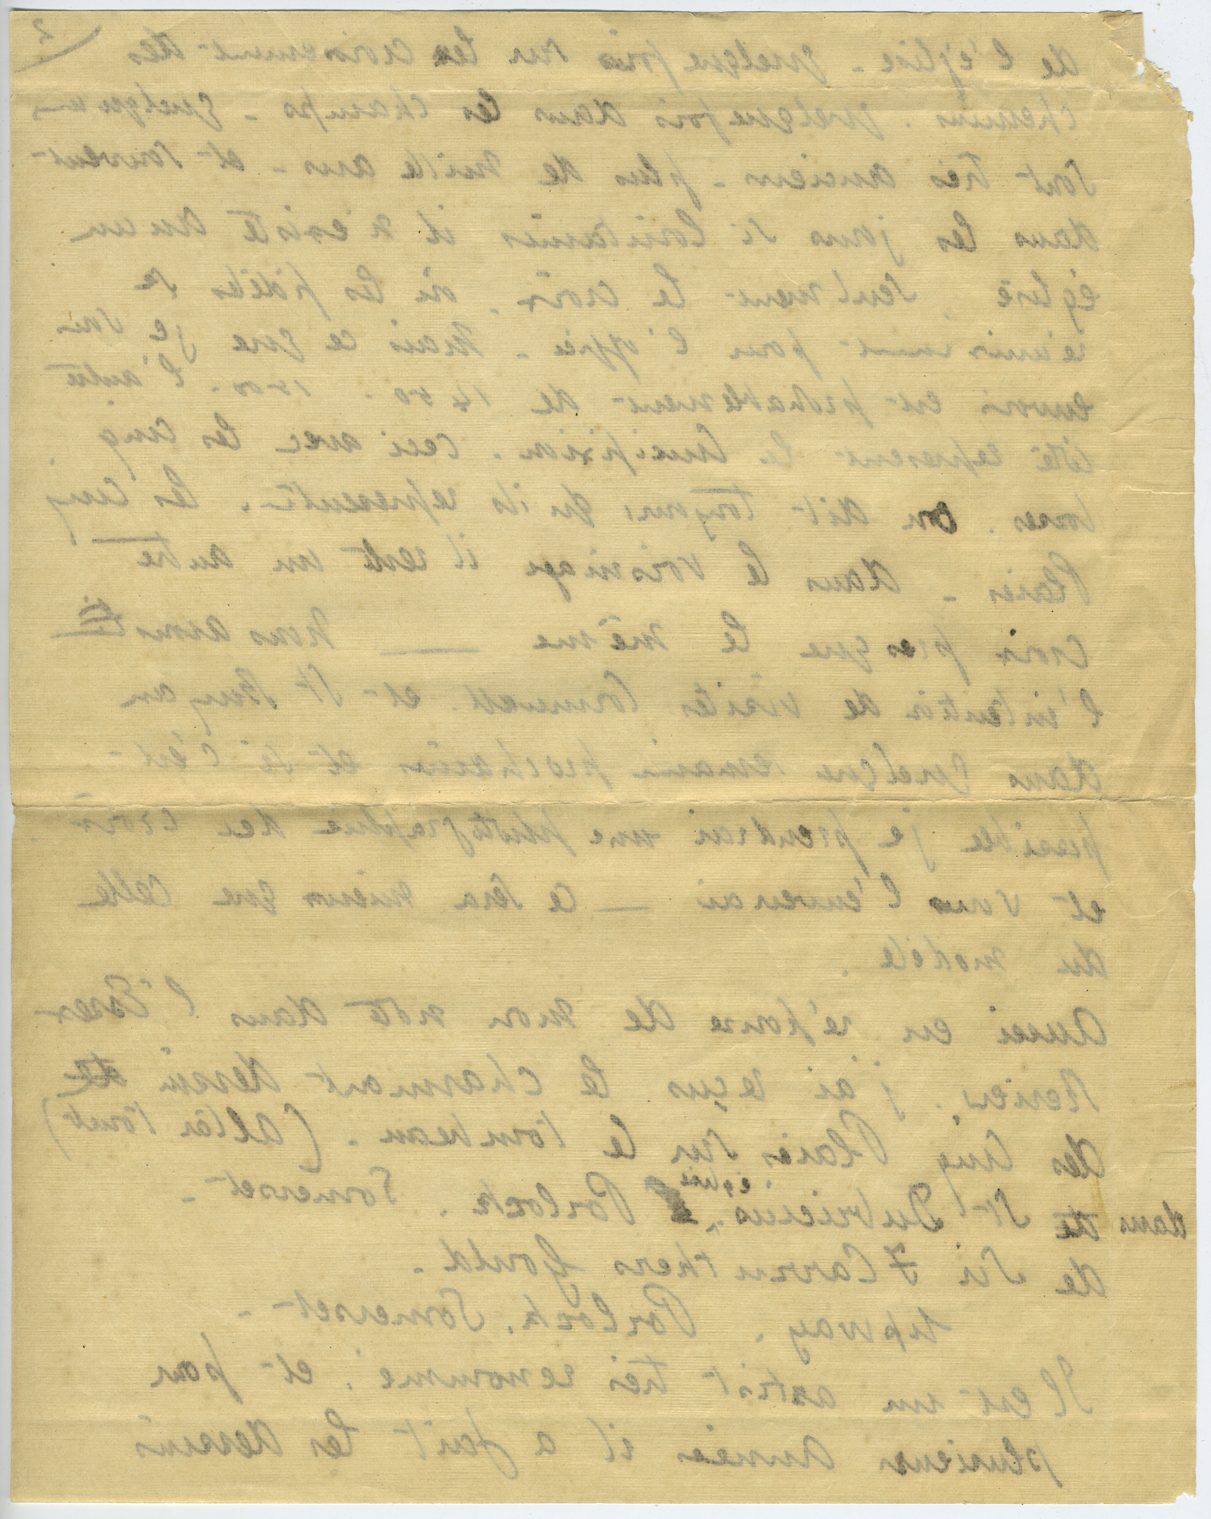 2
de l'église - quelque fois sur les croisement des
chemins. quelquefois dans les champs - quelques uns
sont très anciens - plus de mille ans - et souvent
dans les jours si lointains il n'existe aucun
église, seulment la croix, où les fidèles se
réunissent pour l'office - Mais ce que je vous
envois est probablement de 1450. 1500. l'autre
côté represent la Crucifixion. Ceci avec les cinq
on dit toujours qu'ils represente. les cinq
Plaies - dans le voisinage il est un autre
croix presque le même — Nous avons
l'intention de visites Cornwall et St
dans quelque semain prochains et si c'est
possible je prendrai une photographie des croix
et vous l'enverai — ce sera mieux que celle
du modèle.
Aussi en réponse de mon note dans l'Essex
Review, j'ai reçus le charmant dessin de
des Cinq Plaies sur le tombeau. (Altar tomb)
dans de St Dubricius, église Porlock. Somerset -
de Sir F Carruthers Gould -
Upway. Porlock. Somerset -
Il est un artist très renommé, et pour
plusieurs années il a fait les dessins